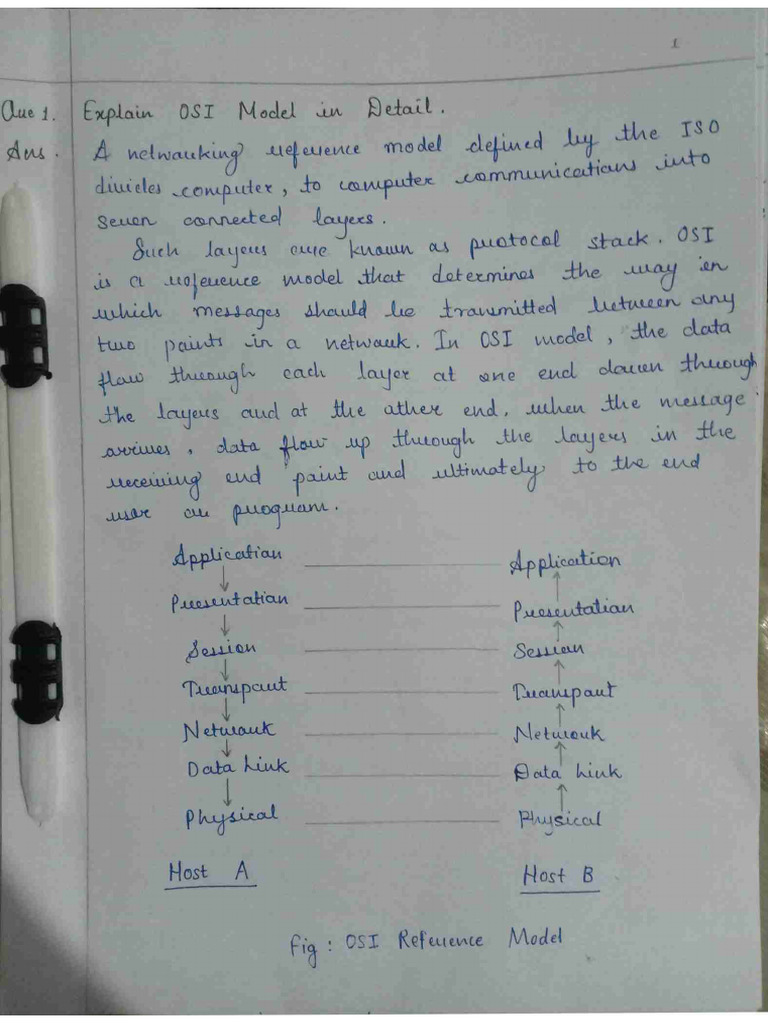 1
Que 1. Explain OSI Model in Detail.
Ans. A networking reference model defined by the ISO
divides computer, to computer communications into
seven connected layers.
Such layers are known as protocol stack. OSI
is a reference model that determines the way in
which messages should be transmitted between any
two points in a network. In OSI model, the data
flow through each layer at one end down through
the layers and at the other end, when the message
arrives, data flow up through the layers in the
receiving end point and ultimately to the end
user or program.
Application Application
Presentation Presentation
Session Session
Transport Transport
Network Network
Data Link Data Link
Physical Physical
Host A Host B
Fig : OSI Reference Model